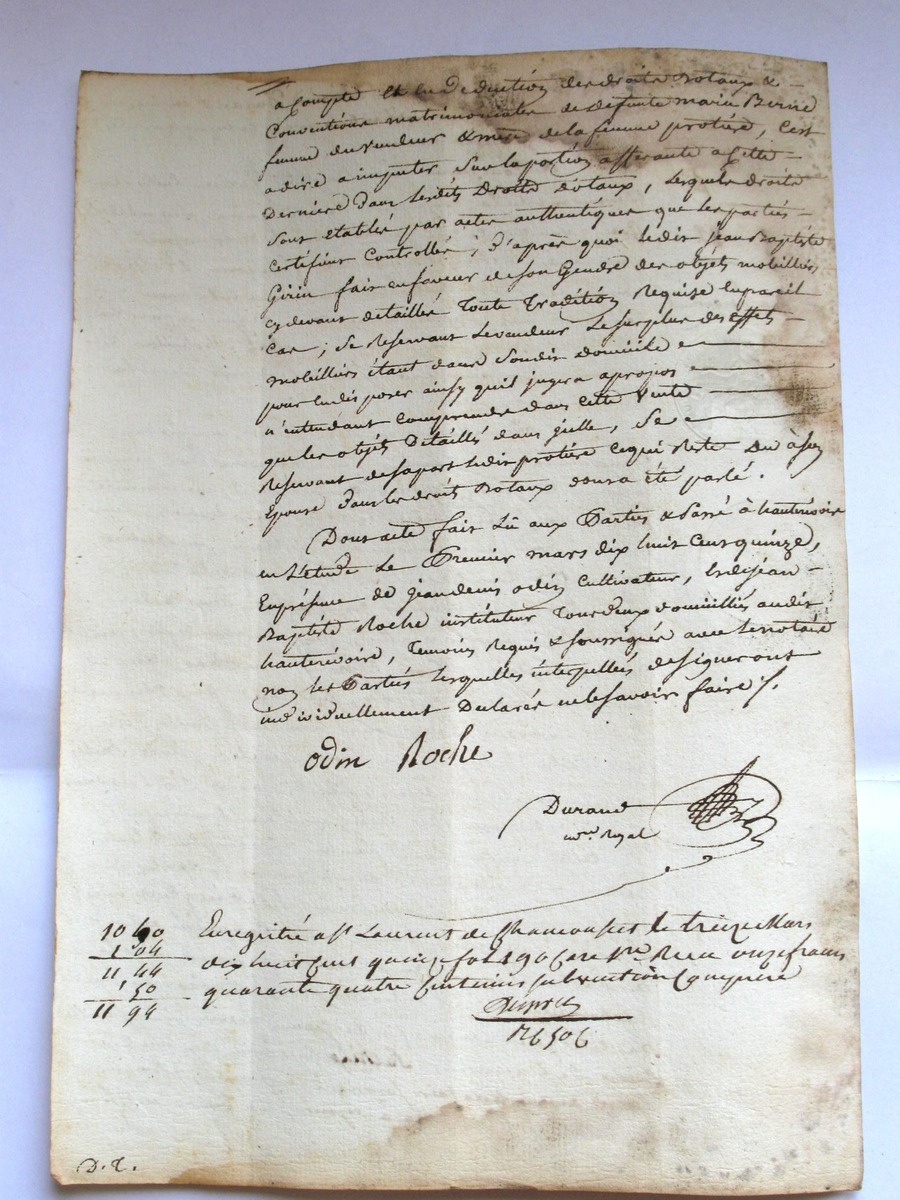 a Compte et en deduction des droits Dotaux &
Conventions matrimoniales de defunte marie Berne
femme du vendeur & mere de la femme protiere, C'est
a dire a imputer sur la portion afferante a Cette
Derniere dans lesdits Droits dotaux, lesquels droits
sont etablis par actes authentiques que les parties
certifient Controllés; d'après quoi ledit jean Baptiste
Girin fait en faveur de son Gendre des objets mobilliers
cy devant detaillés Toute Tradition Requise en pareil
Cas; se Reservant le vendeur le surplus des effets
mobilliers étant dans Son dit domicile
pour en disposer ainsy quil jugera apropos
n'entendant comprendre dans Cette vente
que les objets Détaillés dans jcelle, Se
Reservant de sa part ledit protiere Ce qui Reste Du à son
Epouse dans les droits Dotaux dont a été parlé.
Dont acte fait Lû aux Parties & Passé à hauterivoire
en L'etude Le Premier mars dix huit Cent quinze,
En présence de jean denis odin Cultivateur, & de jean
Baptiste Roche instituteur Tous deux domiciliés audit
hauterivoire, Temoins Requis & soussignés avec le notaire
non les Parties lesquelles interpellées de signer ont
individuellement Declarés ne le savoir faire /.
odin Roche
Durand
no.re Royal
10 40
1 04
11 44
1 50
11 94
Enregistré a St Laurent de Chamousset le treize Mars
dix huit cent quinze fol 190 Case 1re Recu onze francs
quarante quatre Centimes subvention Comprise
D. T.